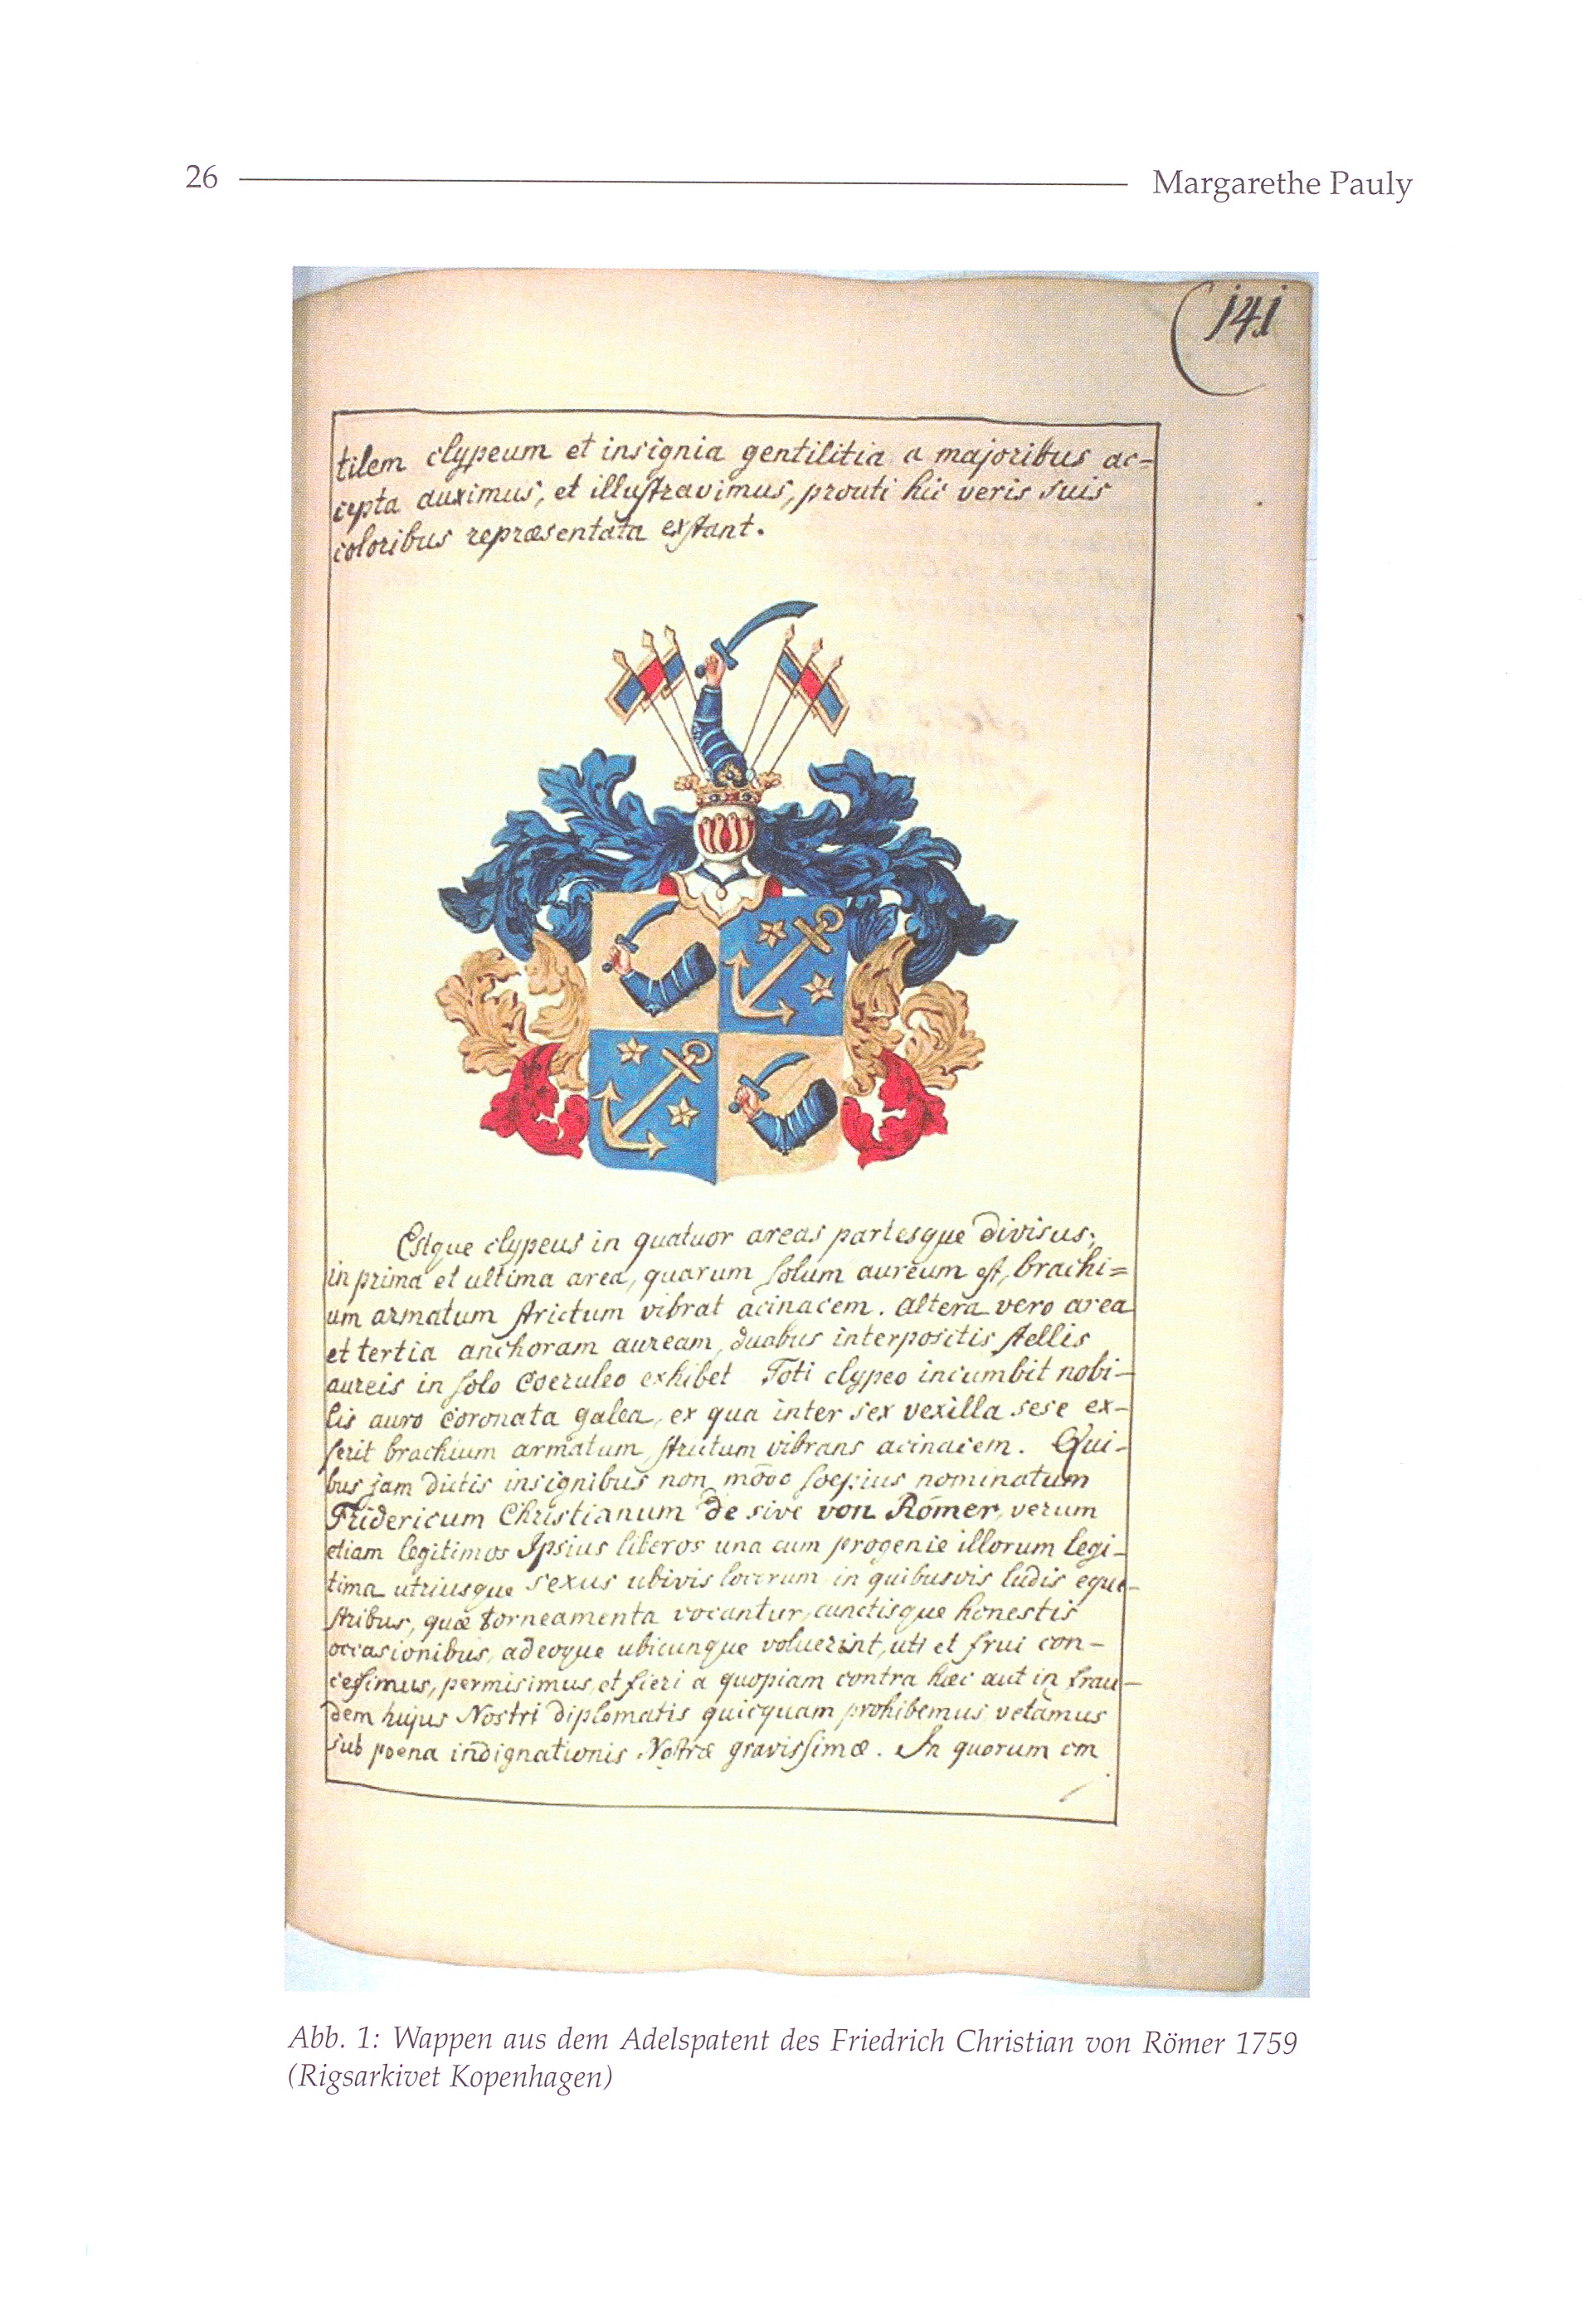 26 Margarethe Pauly
141
tilem clypeum et insignia gentilitia a majoribus ac=
cepta auximus, et illustravimus, prouti hic veris suis
coloribus repræsentata exstant.
Estque clypeus in quatuor areas partesque divisus;
in prima et ultima area, quarum solum aureum est, brachi=
um armatum strictum vibrat acinacem. Altera vero area
et tertia anchoram auream, duabus interpositis stellis
aureis in solo Coeruleo exhibet. Toti clypeo incumbit nobi-
lis auro Coronata galea, ex qua inter sex vexilla sese ex-
serit brachium armatum, strictum vibrans acinacem. Qui-
bus jam dictis insignibus non modo soepius nominatum
Fridericum Christianum de sive von Römer, verum
etiam legitimos Ipsius liberos una cum progenie illorum legi-
tima utriusque sexus ubivis locorum in quibusvis ludis eque-
stribus, quæ torneamenta vocantur, cunctisque honestis
occasionibus, adeoque ubicunque voluerint, uti et frui con-
cessimus, permisimus, et fieri a quopiam contra hæc aut in frau-
dem hujus Nostri diplomatis quicquam prohibemus, vetamus
sub poena indignationis Nostræ gravissimæ. In quorum om
Abb. 1: Wappen aus dem Adelspatent des Friedrich Christian von Römer 1759
(Rigsarkivet Kopenhagen)